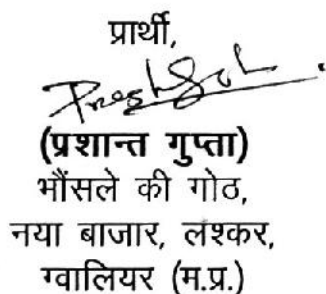 प्रार्थी,
(प्रशान्त गुप्ता)
भौंसले की गोठ,
नया बाजार, लश्कर,
ग्वालियर (म.प्र.)